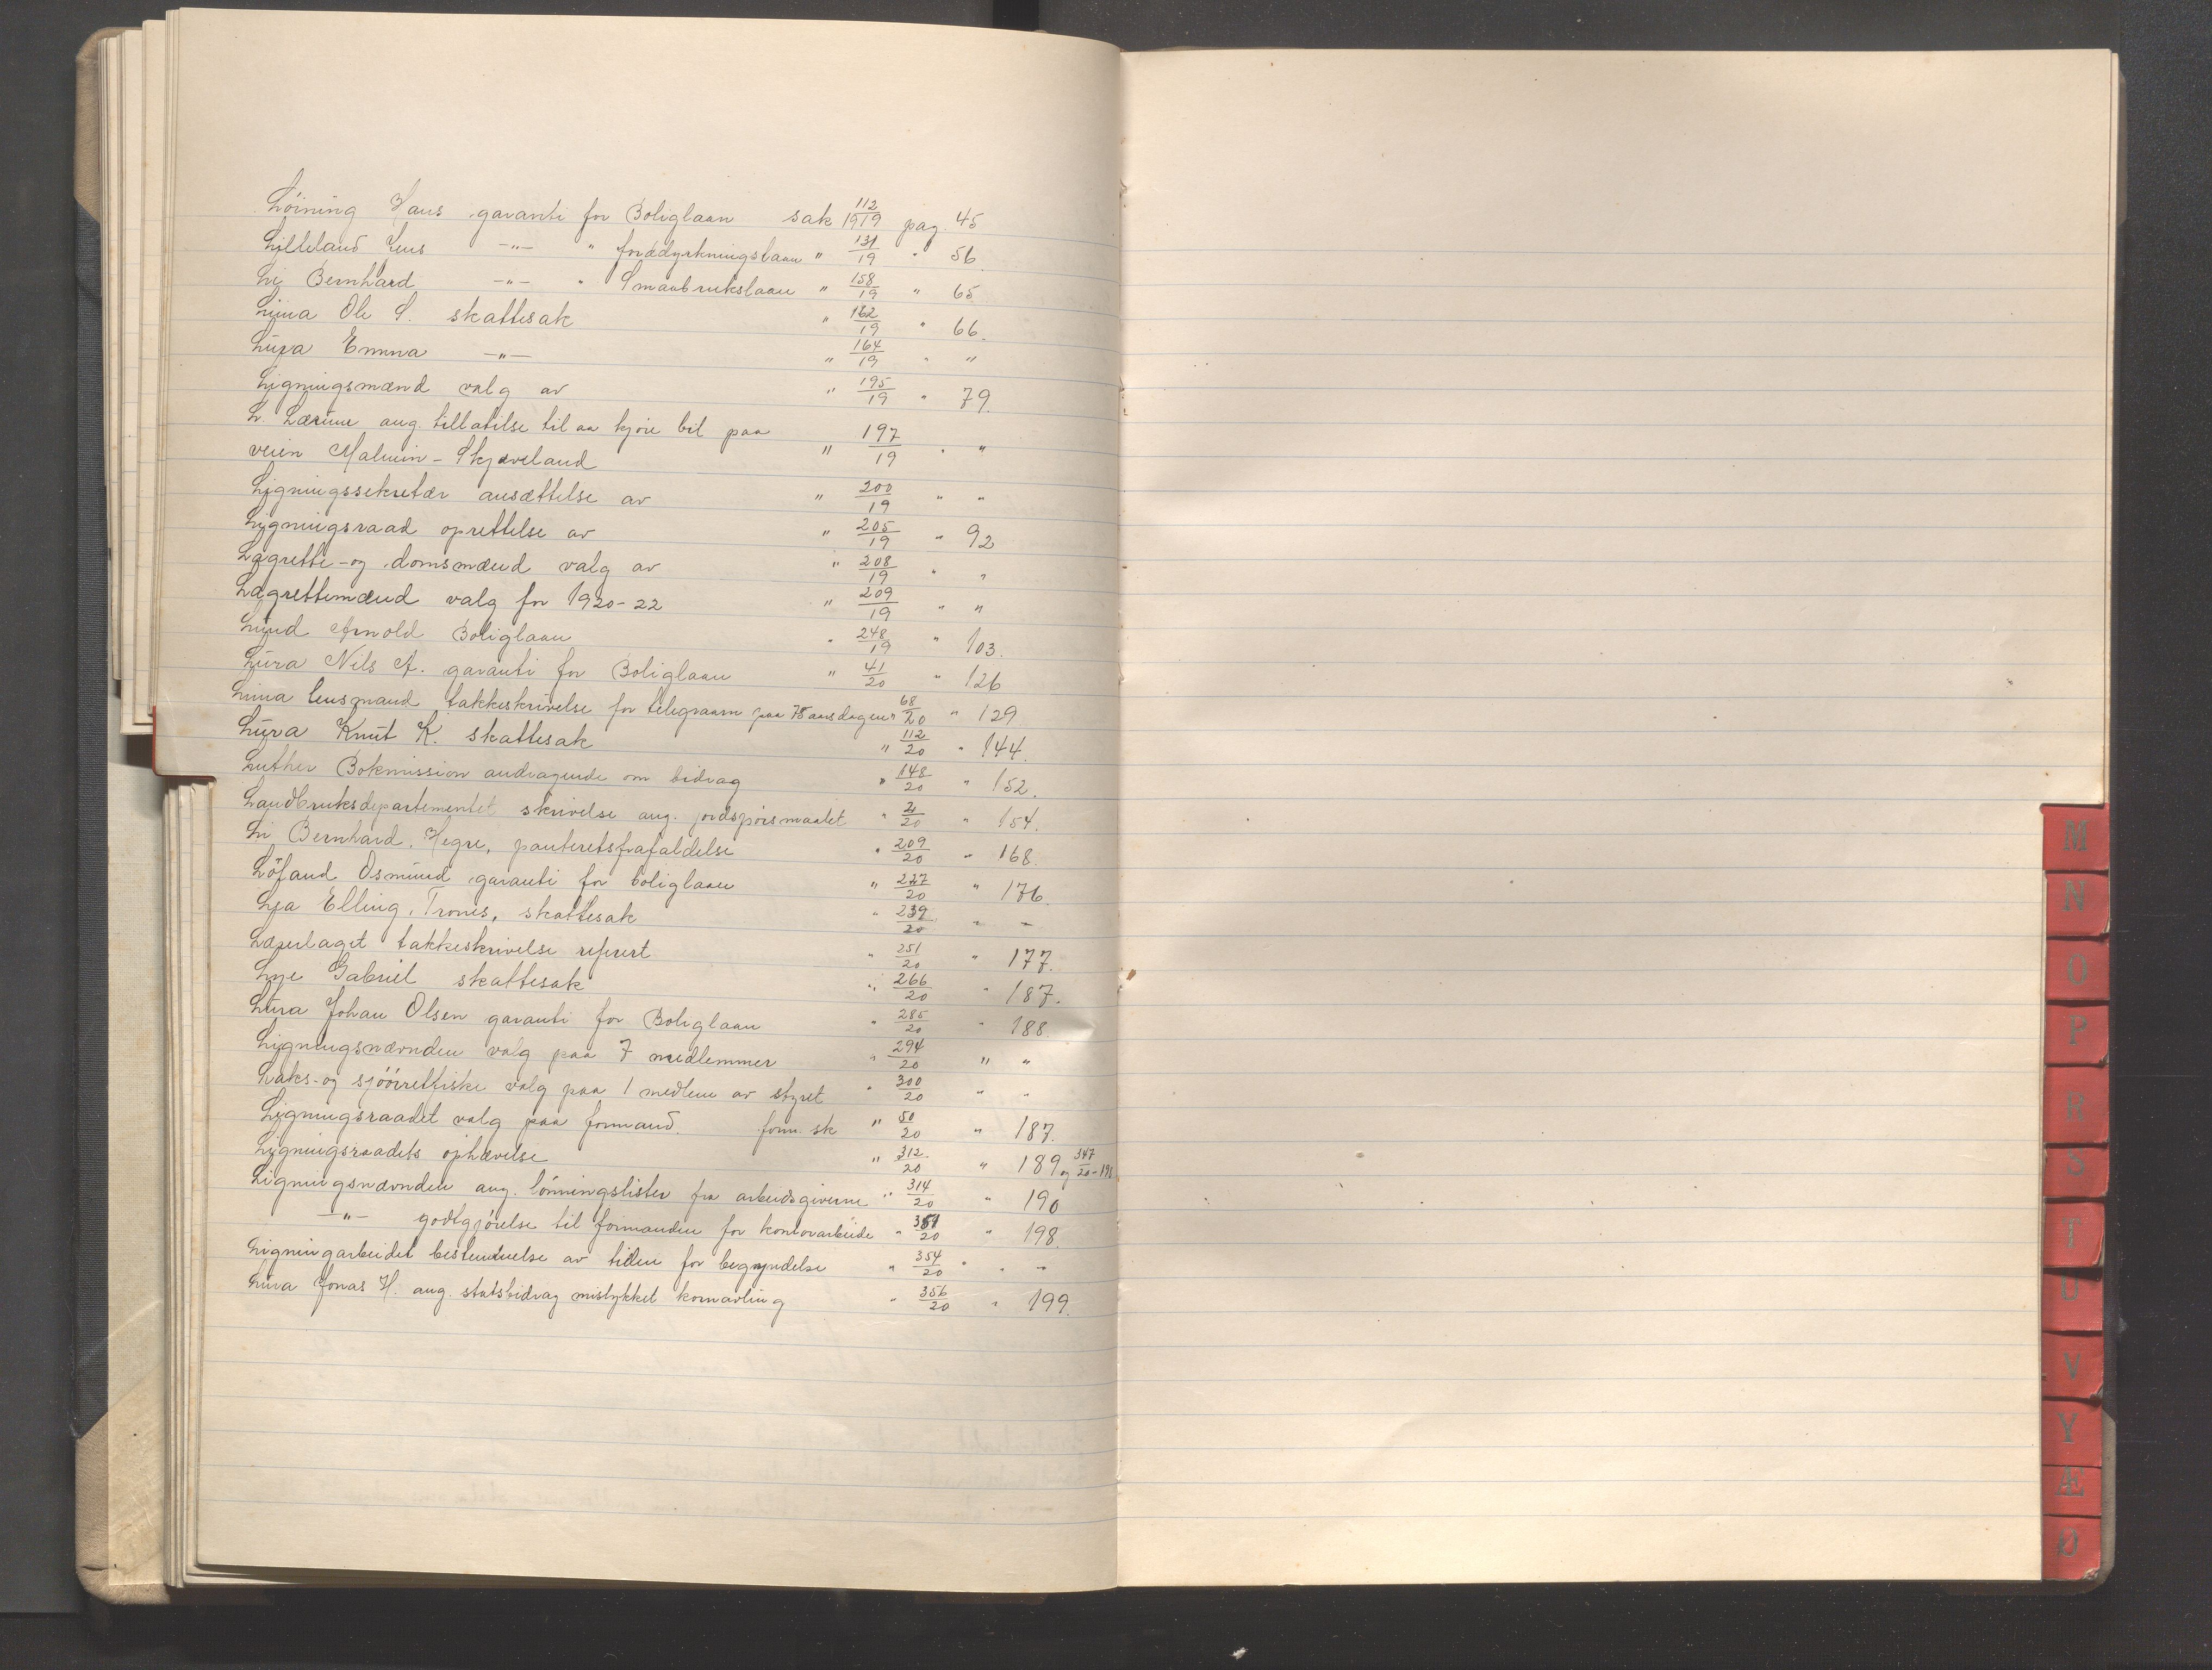 Löining Hans garanti for Boliglaan sak 112/1919 pag. 45
Lilleland Jens -"- " forædyrkningslaan " 131/19 " 56
Li Bernhard -"- " Smaabrukslaan " 158/19 " 65
Lima Ole S. skattesak " 162/19 " 66.
Lura Emma -"- " 164/19 " "
Ligningsmænd valg av " 195/19 " 79.
L. Lærum ang. tillatelse til aa kjöre bil paa
veien Malmin - Skjæveland " 197/19 " "
Ligningssekretær ansættelse av " 200/19 " "
Ligningsraad oprettelse av " 205/19 " 92
Lagrette- og domsmænd valg av " 208/19 " "
Lagrettemænd valg for 1920-22 " 209/19 " "
Lund Arnold Boliglaan " 248/19 " 103.
Lura Nils A. garanti for Boliglaan " 41/20 " 126
Lima lensmand takkeskrivelse for telegram paa 75 aarsdagen " 68/20 " 129
Lura Knut K. skattesak " 112/20 " 144.
Luther Bokmission andragende om bidrag " 148/20 " 152.
Landbruksdepartementet skrivelse ang. jordspörsmaalet " 2/20 " 154.
Li Bernhard, Hegre, panteretsfrafaldelse " 209/20 " 168.
Löfand Osmund garanti for boliglaan " 227/20 " 176.
Lya Elling, Trones, skattesak " 239/20 " -
Lægerlaget takkeskrivelse referert " 251/20 " 177.
Lye Gabriel skattesak " 266/20 " 187.
Lura Johan Olsen garanti for Boliglaan " 285/20 " 188
Ligningsnævnden valg paa 7 medlemmer " 294/20 " "
Laks- og sjöörretfiske valg paa 1 medlem av styret " 300/20 " "
Ligningsraadet valg paa formand. form. sk " 50/20 " 187.
Ligningsraadets ophævelse " 312/20 " 189 og 347/20 - 198
Ligningsnævnden ang. lönningslister fra arbeidsgiverne " 314/20 " 190
-"- godtgjörelse til formanden for kontorarbeide " 351/20 " 198.
Ligningarbeidet bestemmelse av tiden for begyndelse " 354/20 " " -
Lura Jonas H. ang. statsbidrag mislykket kornavling " 356/20 " 199.
M
N
O
P
R
S
T
U
V
Y
Æ
Ø